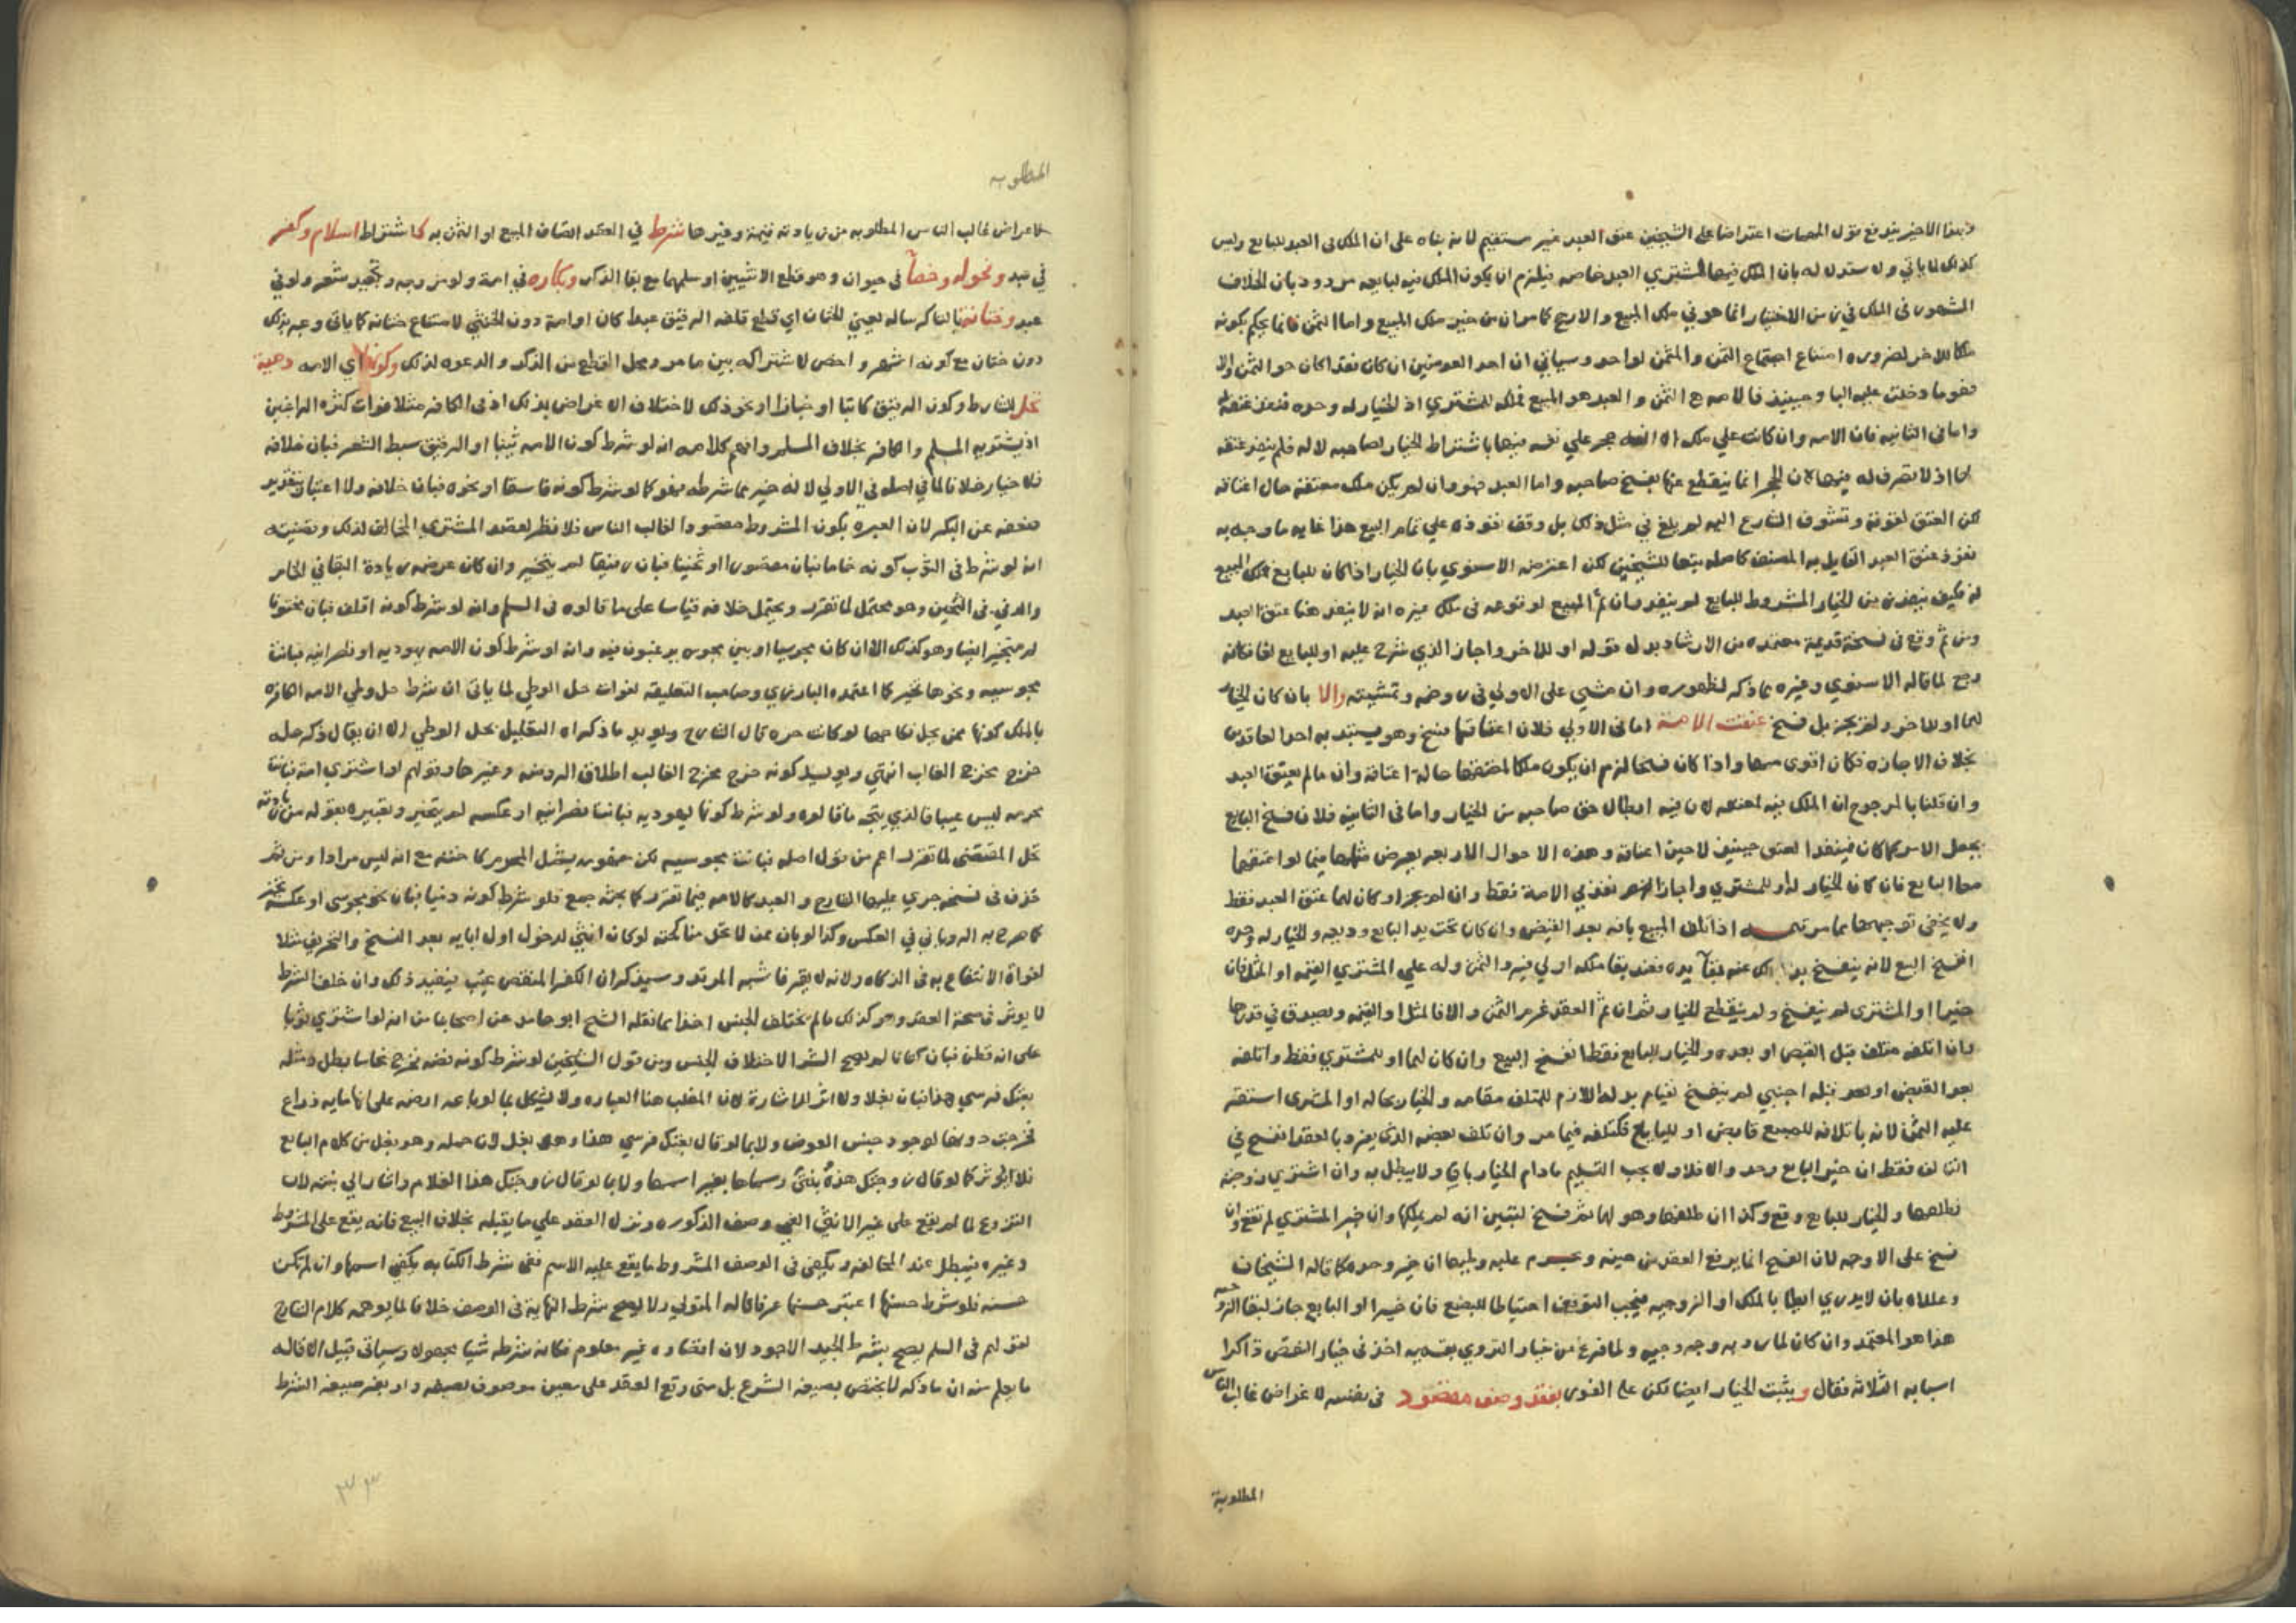 وبهذا الاخير يندفع قول المهمات اعتراضا على الشيخين عتق العبد غير مستقيم لانه بناه على ان الملك في العبد للبايع وليس
كذلك لما ياتي ولا يستدل له بان الملك فيها لمشتري العبد خاصه فيلزم ان يكون الملك فيه لبايعه مردود بان الخلاف
المشهور في الملك في زمن الاختيار انما هو في ملك المبيع والارجح كما مر ان من خير ملك المبيع واما الثمن فانما يحكم بكونه
ملكا للاخر لضروره امتناع اجتماع الثمن والمثمن لواحد وسياتي ان احد العوضين ان كان نقدا كان هو الثمن والا
فهو ما دخلت عليه البا وحينيذ فالامه هي الثمن والعبد هو المبيع فملكه للمشتري اذ الخيار له وحده فنفذ عتقه
واما في الثانيه فان الامه وان كانت علي ملك الا انه حجر علي نفسه فيها باشتراط الخيار لصاحبه لا له فلم ينفذ عتقه
لها اذ لا تصرف له فيها لان الحجر انما ينقطع عنها بفسخ صاحبه واما العبد فهو وان لم يكن ملك معتقه حال اعتاقه
لكن العتق لقوته وتشوف الشارع اليه لم يلغ في مثل ذلك بل وقف نفوذه علي تمام البيع هذا غايه ما وجه به
نفوذ عتق العبد القايل به المصنف كاصله تبعا للشيخين لكن اعترضه الاسنوي بان الخيار اذا كان للبايع فملك المبيع
له فكيف ينفذ زمن الخيار المشروط للبايع لم ينفذ وان تم المبيع لوقوعه في ملك غيره انه لا ينفذ هنا عتق العبد
ومن ثم وقع في نسخة قديمة معتمده من الارشاد بدل قوله او للاخر واجاز الذي شرح عليه او للبايع لغا فكانه
رجح لما قاله الاسنوي وغيره مما ذكر لظهوره وان مشي على الاولي في روضه وتمشيته والا بان كان الخيار
لهما او للاخر ولم يجز بل فسخ عتقت الامة اما في الاولي فلان اعتاقها فسخ وهو يستبد به احد العاقدين
بخلاف الاجازه فكان اقوى منها واذا كان فسخا لزم ان يكون ملكا لمعتقها حالة اعتاقه وان لم يعتق العبد
وان قلنا بالمرجوح ان الملك فيه لمعتقه لان فيه ابطال حق صاحبه من الخيار واما في الثانيه فلان فسخ البايع
يجعل الامر كما كان فينفذ العتق حينيذ لا حين اعتاقه وهذه الاحوال الاربعه يعرض مثلها فيما لو اعتقها
معا البايع فان كان الخيار له او للمشتري واجاز نفذ في الامة فقط وان لم يجز او كان لهما عتق العبد فقط
ولا يخفي توجيهها مما مر تتمه اذا تلف المبيع بافه بعد القبض وان كان تحت يد البايع وديعه والخيار له وحده
انفسخ البيع لانه ينفسخ بذلك عند بقا يده فعند بقا ملكه اولي فيرد الثمن وله علي المشتري القيمه او المثل فان
خيرا او المشتري لم ينفسخ ولم ينقطع الخيار ثم ان تم العقد غرم الثمن والا فالمثل او القيمه ويصدق في قدرها
وان اتلفه متلف قبل القبض او بعده والخيار للبايع فقط انفسخ البيع وان كان لهما او للمشتري فقط واتلفه
بعد القبض او بعد قبله اجنبي لم ينفسخ لقيام بدله اللازم للمتلف مقامه والخيار بحاله او المشتري استقر
عليه الثمن لانه باتلافه للمبيع قابض او البايع فكتلفه فيما مر وان تلف بعضه الذي يفرد بالعقد انفسخ في
التالف فقط ان خير البايع وحده والا فلا ولا يجب التسليم مادام الخيار باق ولا يبطل به وان اشتري زوجته
فطلقها والخيار للبايع وقع وكذا ان طلقها وهو لهما ثم فسخ لتبين انه لم يملكها وان خير المشتري لم تقع وان
فسخ على الاوجه لان الفسخ انما يرفع العقد من حينه ويحرم عليه وطيها ان خير وحده كما قاله الشيخان
وعللاه بان لا يدري ايطا بالملك او الزوجيه فيجب التوقف احتياطا للبضع فان خيرا او البايع جاز لبقا الزوجيه
هذا هو المعتمد وان كان لما ردبه وجه وجيه ولما فرغ من خيار التروي بقسميه اخذ في خيار النقص ذاكرا
اسبابه الثلاثه فقال ويثبت الخيار ايضا لكن علي الفور بفقد وصف مقصود في نفسه لاغراض غالب الناس
المطلوبة
المطلوبه
لاغراض غالب الناس المطلوبه من زيادته قيمة وغيرها شرط في العقد اتصاف المبيع او الثمن به كاشتراط اسلام وكفر
في عبد ونحوله وخصآ في حيوان وهو قطع الانثيين او سلهما مع بقا الذكر وبكاره في امة ولو مزوجه وتجعيد شعر ولو في
عبد وختانة بالتا كرساله بمعنى الختان اي قطع قلفه الرقيق عبدا كان او امة دون الخنثي لامتناع ختانه كما ياتي وعبر بذلك
دون ختان مع كونه اشهر واخصر لاشتراكه بين ما مر ومحل القطع من الذكر والدعوه لذلك وكونها اي الامه وهبة
تحل للشارط وكون الرقيق كاتبا او خبازا او نحو ذلك لاختلاف الاغراض بذلك اذ في الكافر مثلا فوات كثره الراغبين
اذ يشتريه المسلم والكافر بخلاف المسلم وافهم كلامه انه لو شرط كون الامه ثيبا او الرقيق سبط الشعر فبان خلافه
فلا خيار خلافا لما في اصله في الاولي لانه خير مما شرطه فهو كما لو شرط كونه فاسقا او نحوه فبان خلافه ولا اعتبار بتقدير
ضعفه عن البكر لان العبره بكون المشروط مقصودا لغالب الناس فلا نظر لقصد المشتري المخالف لذلك وقضيته
انه لو شرط في الثوب كونه خاما فبان مقصورا او ثخينا فبان رقيقا لم يتخير وان كان غرضه زيادة البقا في الخام
والدفي في الثخين وهو محتمل لما تقرر ويحتمل خلافه قياسا على ما قالوه في السلم وانه لو شرط كونه اقلف فبان مختونا
لم يتخير ايضا وهو كذلك الا ان كان مجوسيا او بين مجوس يرغبون فيه وانه لو شرط كون الامه يهوديه او نصرانيه فبانت
مجوسيه ونحوها تخير كما اعتمده البارزي وصاحب التعليقه لفوات حل الوطي لما ياتي ان شرط حل وطي الامه الكافره
بالملك كونها ممن يحل نكاحها لو كانت حره قال الشارح ويويد ما ذكراه التعليل بحل الوطي الا ان يقال ذكر حله
خرج مخرج الغالب انتهي ويويد كونه خرج مخرج الغالب اطلاق الروضه وغيرها وقولهم لو اشتري امة فبانت
محرمه ليس عيبا فالذي يتجه ما قالوه ولو شرط كونها يهوديه فبانت نصرانيه او عكسه لم يتخير وتعبيره بقوله من زيادته
تحل المقتضي لما تقرر اعم من قول اصله فبانت مجوسيه لكن مفهومه يشمل المحرم كاخته مع انه ليس مرادا ومن ثم
حذف في نسخه جري عليها الشارح والعبد كالامه فيما تقرر كما بحثه جمع فلو شرط كونه ذميا فبان نحو مجوسي او عكسه تخير
كما صرح به الروياني في العكس وكذا لو بان ممن لا تحل مناكحته لو كان انثي لدخول اول ابايه بعد النسخ والتحريف مثلا
لفوات الانتفاع به في الذكاه ولانه لا يقر فاشبه المرتد وسيذكر ان الكفر المنقص عيب يفيد ذلك وان خلف الشرط
لا يوثر في صحة العقد وهو كذلك ما لم يختلف الجنس اخذا مما نقله الشيخ ابو حامد عن اصحابنا من انه لو اشتري ثوبا
علي انه قطن فبان كتانا لم يصح الشرا لاختلاف الجنس ومن قول الشيخين لو شرط كونه فضه فخرج نحاسا بطل ومثله
بعتك فرسي هذا فبان بغلا ولا اثر للاشارة لان المغلب هنا العباره ولا يشكل بما لو باعه ارضه على انها مايه ذراع
فخرجت دونها لوجود جنس العوض ولا بما لو قال بعتك فرسي هذا وهو بغل لان جمله وهو بغل من كلام البايع
فلا تؤثر كما لو قال زوجتك هذه بنتي وسماها بغير اسمها ولا بما لو قال زوجتك هذا الغلام واشار الي بنته لان
التزوج لما لم يقع على غير الانثي الغي وصف الذكوره ونزل العقد علي ما يقبله بخلاف البيع فانه يقع على المشروط
وغيره فيبطل عند المخالفه ويكفي في الوصف المشروط ما يقع عليه الاسم ففي شرط الكتابه يكفي اسمها وان لم تكن
حسنه فلو شرط حسنها اعتبر حسنها عرفا قاله المتولي ولا يصح شرط النهاية في الوصف خلافا لما يوهمه كلام الشارح
لقولهم في السلم يصح بشرط الجيد لا الاجود لان اقصاه غير معلوم فكانه شرطه شيا مجهولا وسياتي قبيل الاقاله
ما يعلم منه ان ما ذكر لا يختص بصيغه الشرع بل متي وقع العقد على معين موصوف بصيغه ولو بغير صيغه الشرط